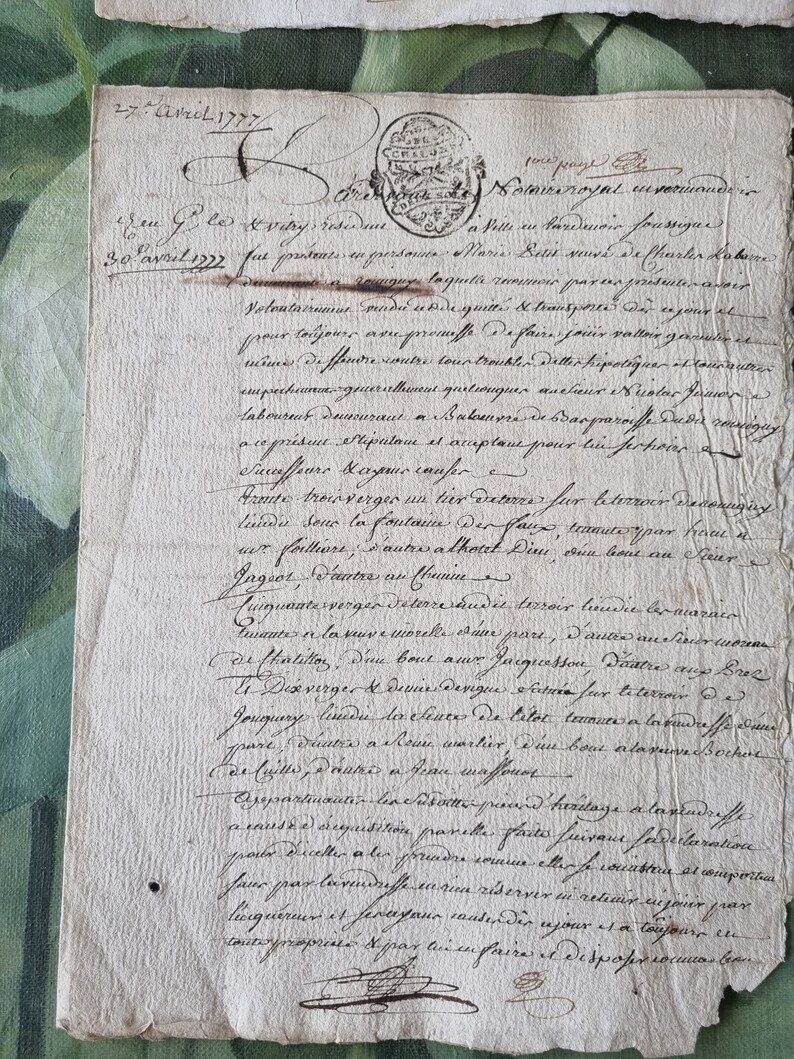 27.e Avril 1777
1ere page
Pardevant le Notaire royal en vermandois
& vitry resident à Ville en tardenois soussigné
Gle
30e avril 1777
fut présente en personne Marie Petit veuve de Charles Labarre
demeurante a romigny laquelle reconnois par ces présentes avoir
volontairement vendu cédé quitté & transporté dès ce jour et
pour toûjours avec promesse de faire jouir valloir garantir et
même deffendre contre tous troubles dettes hipotèques et tous autres
empechements generallement quelconques au Sieur Nicolas
laboureur demeurant a de Bas paroisse dudit romigny
a ce présent stipulant et acceptant pour lui ses hoirs
Successeurs & ayans causes
trente trois verges un tier de terre sur le terroir de romigny
lieudit sous la fontaine des faux, tenante par haut a
mr foilliart, d'autre a l'hotel Dieu, d'un bout au Sieur
Jageot, d'autre au Chemin
Cinquante verges de terre audit terroir lieudit les marais
tenante a la veuve morelle d'une part, d'autre au Sieur moreau
de Chatillon, d'un bout a mr Jacquesson, d'autre aux Prez
Et Dix verges & demie de vigne scituée sur le terroir de
Jonquery lieudit la Sente de tenante a la venderesse d'une
part, d'autre a Remi marlier, d'un bout a la veuve Bochet
de Cuille, d'autre a Jean massonot
Appartenantes les susdittes pièces d'héritage a la venderesse
a cause d'acquisition par elle faite suivant sa déclaration
pour d'icelles a les prendre comme elles se consistent et comportent
sans par la venderesse en rien réserver ni retenir en jouir par
l'acquéreur et ses ayans causes dès ce jour et a toûjours en
toute propriété & par lui en faire et disposer comme bon